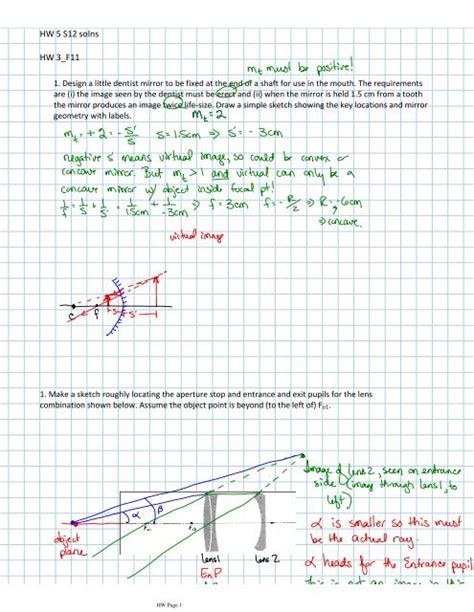 HW 5 S12 solns
HW 3_F11
mt must be positive!
1. Design a little dentist mirror to be fixed at the end of a shaft for use in the mouth. The requirements
are (i) the image seen by the dentist must be erect and (ii) when the mirror is held 1.5 cm from a tooth
the mirror produces an image twice life-size. Draw a simple sketch showing the key locations and mirror
geometry with labels.
mt = 2
mt = +2 = -s'/s s = 1.5cm ⇒ s' = -3cm
negative s' means virtual image, so could be convex or
concave mirror. But mt > 1 and virtual can only be a
concave mirror w/ object inside focal pt!
1/f = 1/s + 1/s' = 1/1.5cm + 1/-3cm ⇒ f = 3cm f = -R/2 ⇒ R = -6cm
⇒ concave.
virtual image
C f s s'
1. Make a sketch roughly locating the aperture stop and entrance and exit pupils for the lens
combination shown below. Assume the object point is beyond (to the left of) Fo1.
Image of lens 2, seen on entrance
side (imag through lens 1, to
left)
α β
α is smaller so this must
be the actual ray.
object
plane
lens1
lens 2
EnP
α heads for the Entrance pupil
HW Page 1